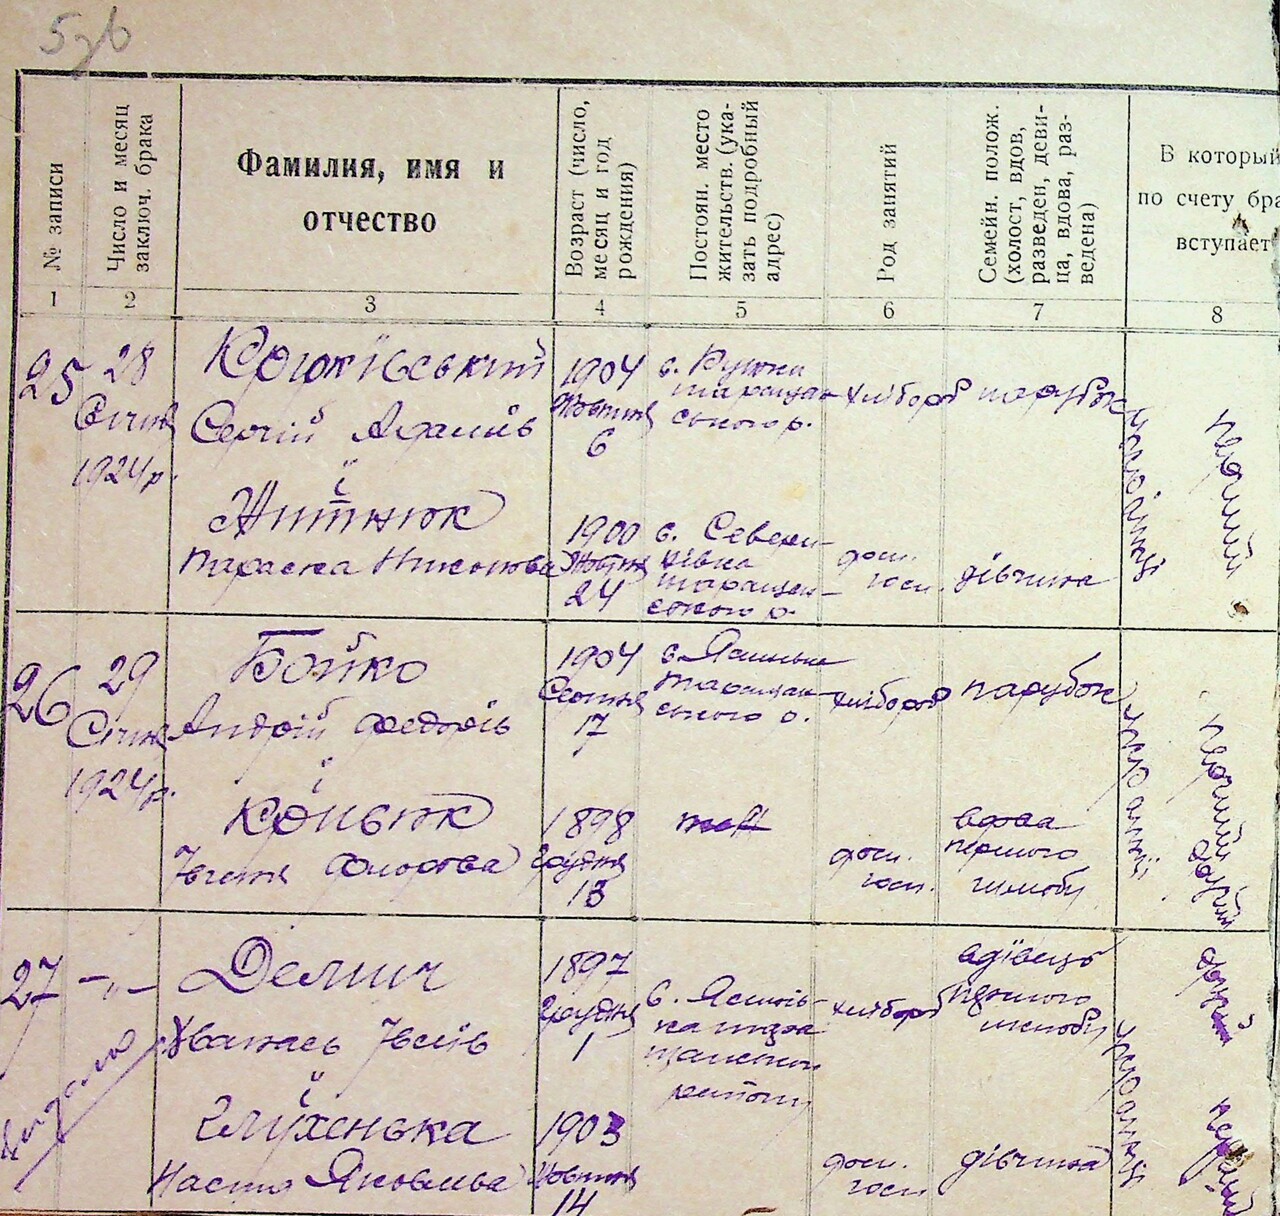 57б
№ записи
Число и месяц
заключ. брака
Фамилия, имя и
отчество
Возраст (число,
месяц и год
рождения)
Постоян. место
жительств. (ука-
зать подробный
адрес)
Род занятий
Семейн. полож.
(холост, вдов,
разведен, деви-
ца, вдова, раз-
ведена)
В который
по счету бра
вступает
1 2 3 4 5 6 7 8
25
28
Січня
1924р.
Крижівський
Сергій Адамів
і
Житнюк
Параска Никонова
1904
Жовтня
6
1900
Жовтня
24
с.
таращан-
ського р.
с. Севери-
нівка
таращан-
ського р.
хлібороб
дом.
госп.
парубок
дівчина
українці
перший
26
29
Січня
1924р.
Бойко
Андрій Федорів
і
Євгенія Флорова
1904
Серпня
17
1898
Грудня
13
с.
Таращан-
ського р.
хлібороб
дом.
госп.
парубок
вдова
першого
шлюбу
українці
перший
другий
27
-„-
видано
Демич
Опанась Івсіїв
і
Глухенька
Настя Яковлева
1897
Грудня
1
1903
Жовтня
14
с. Яснів-
ка тара
щанськ
району
хлібороб
дом.
госп.
вдівець
першого
шлюбу
дівчина
українці
другий
перший